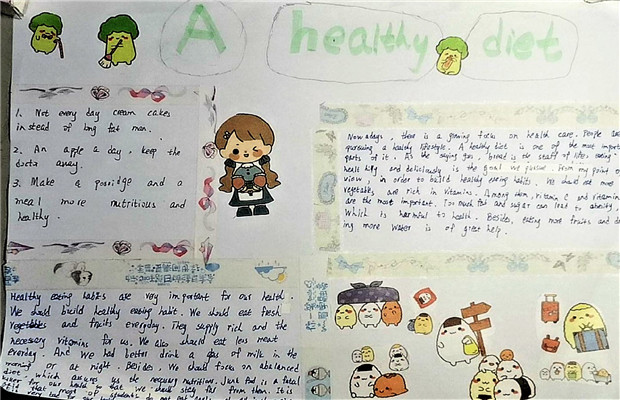 A healthy diet
1. Not every day cream cakes
instead of long fat man.
2. An apple a day, keep the
doctor away.
3. Make a porridge and a
meal more nutritious and
healthy.
Nowadays, there is a growing focus on health care. People
pursuing a healthy lifestyle. A healthy diet is one of the most important
parts of it. As the saying goes, bread is the staff of life. eating
healthily and deliciously is the goal we pursue. From my point of
view, in order to build healthy eating habits, We should eat more
vegetable, are rich in vitamins. Among them, vitamin C and vitamin
are the most important. Too much fat and sugar can lead to obesity,
Which is harmful to health. Besides, eating more fruits and
ing more water is of great help.
Healthy eating habits are very important for our health.
We should build healthy eating habit. We should eat fresh
vegetables and fruits everyday. They supply rich and the
necessary vitamins for us. We also should eat less meat
everyday. And We had better drink a glass of milk in the
morning or at night. Besides, We should focus on a balanced
diet, which assures us the necessary nutritions. Junk food is a fatal
for our health so that we should stay far from them. It is